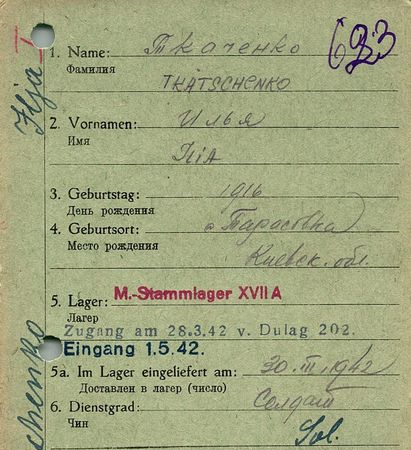 693
1. Name: Ткаченко
Фамилия
TKATSCHENKO
2. Vornamen: Илья
Имя
3. Geburtstag: 1916
День рождения
4. Geburtsort: с Тарасовка
Место рождения Киевск. обл.
5. Lager: M.-Stammlager XVII A
Лагер
Zugang am 28.3.42 v. Dulag 202.
Eingang 1.5.42.
5a. Im Lager eingeliefert am: 30. III. 1942
Доставлен в лагер (число)
6. Dienstgrad: Солдат
Чин Sol.
Ilja
chenko